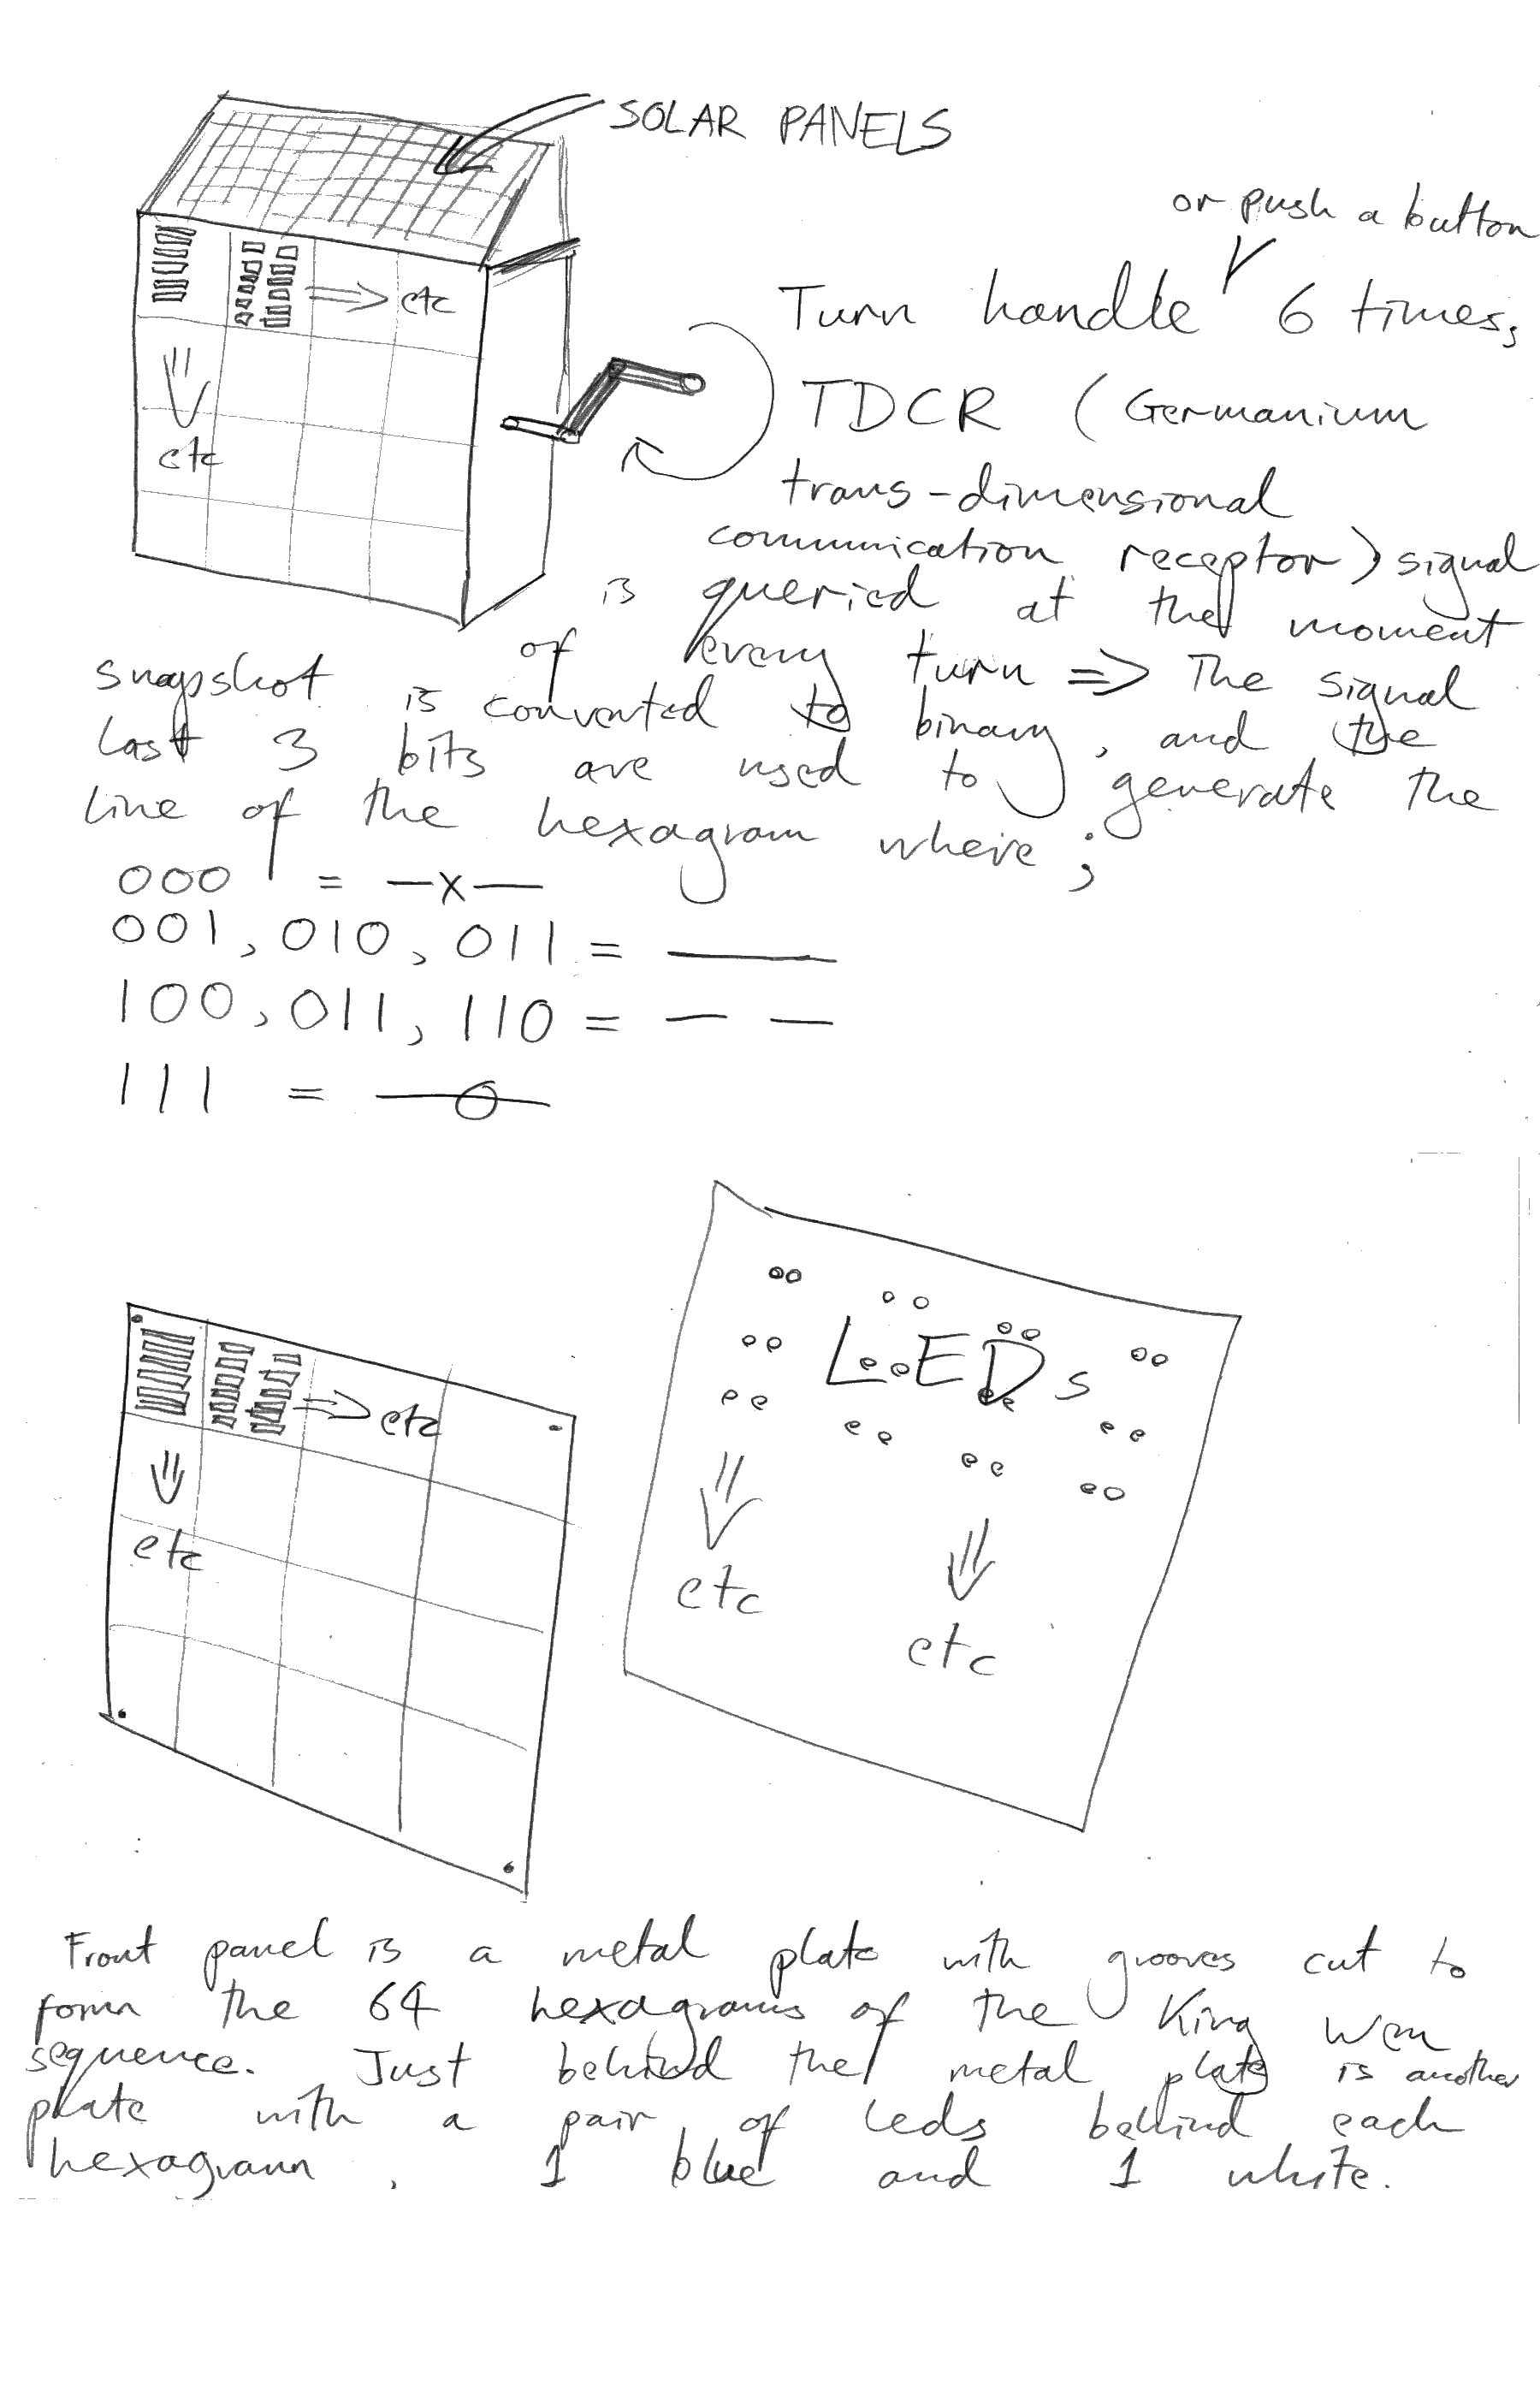 SOLAR PANELS
or push a button
Turn handle 6 times,
TDCR (Germanium
trans-dimensional
communication receptor) signal
is queried at the moment
of every turn => The signal
snapshot is converted to binary, and the
last 3 bits are used to generate the
line of the hexagram where;
000 = —x—
001, 010, 011 = ———
100, 011, 110 = — —
111 = —o—
=> etc
etc
=> etc
etc
LEDs
etc
etc
Front panel is a metal plate with grooves cut to
form the 64 hexagrams of the King Wen
sequence. Just behind the metal plate is another
plate with a pair of leds behind each
hexagram, 1 blue and 1 white.